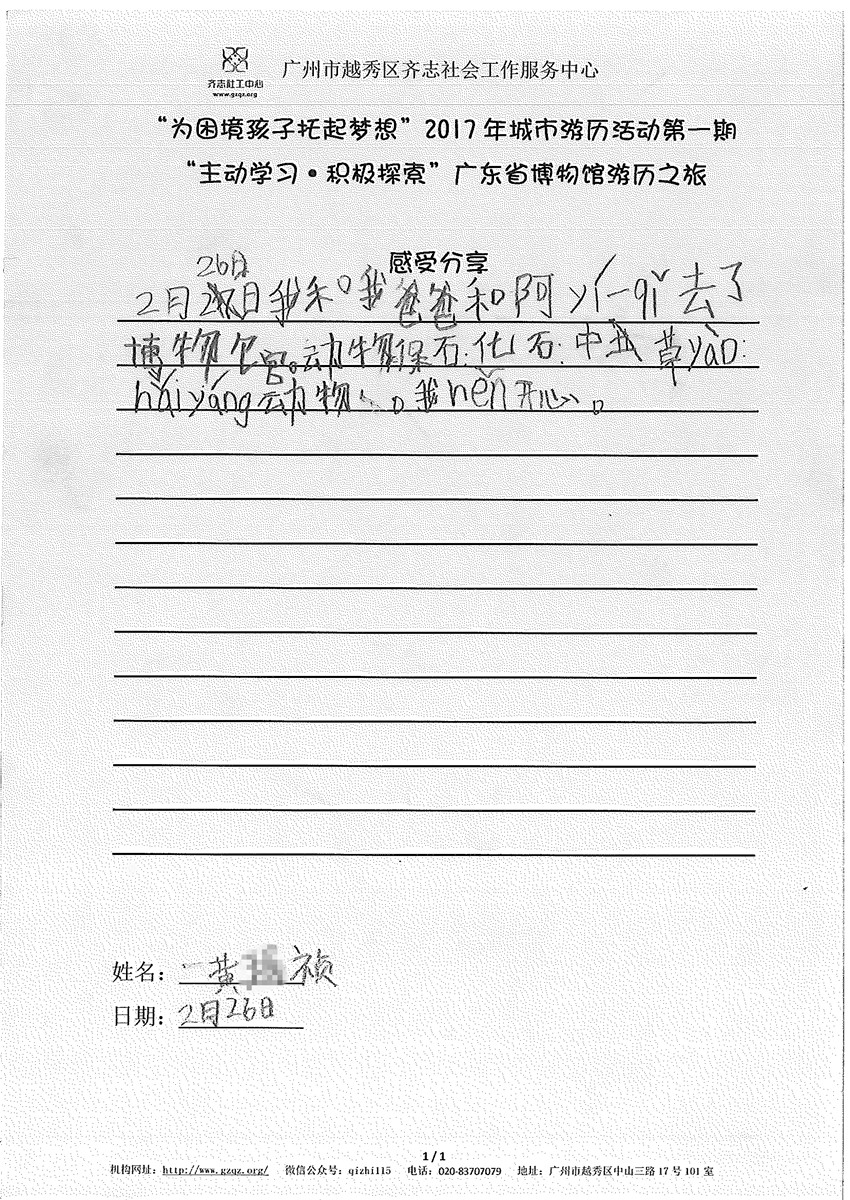 齐志社工中心
www.gzqz.org
广州市越秀区齐志社会工作服务中心
“为困境孩子托起梦想”2017年城市游历活动第一期
“主动学习·积极探索”广东省博物馆游历之旅
感受分享
26日
2月日我禾口我爸爸和阿yí一qǐ去了
博物官。动物保石:化石:中我草yào:
hǎiyáng动物。我hěn开心。
姓名:黄 祯
日期:2月26日
1/1
机构网址:http://www.gzqz.org/ 微信公众号:qizhi115 电话:020-83707079 地址:广州市越秀区中山三路17号101室